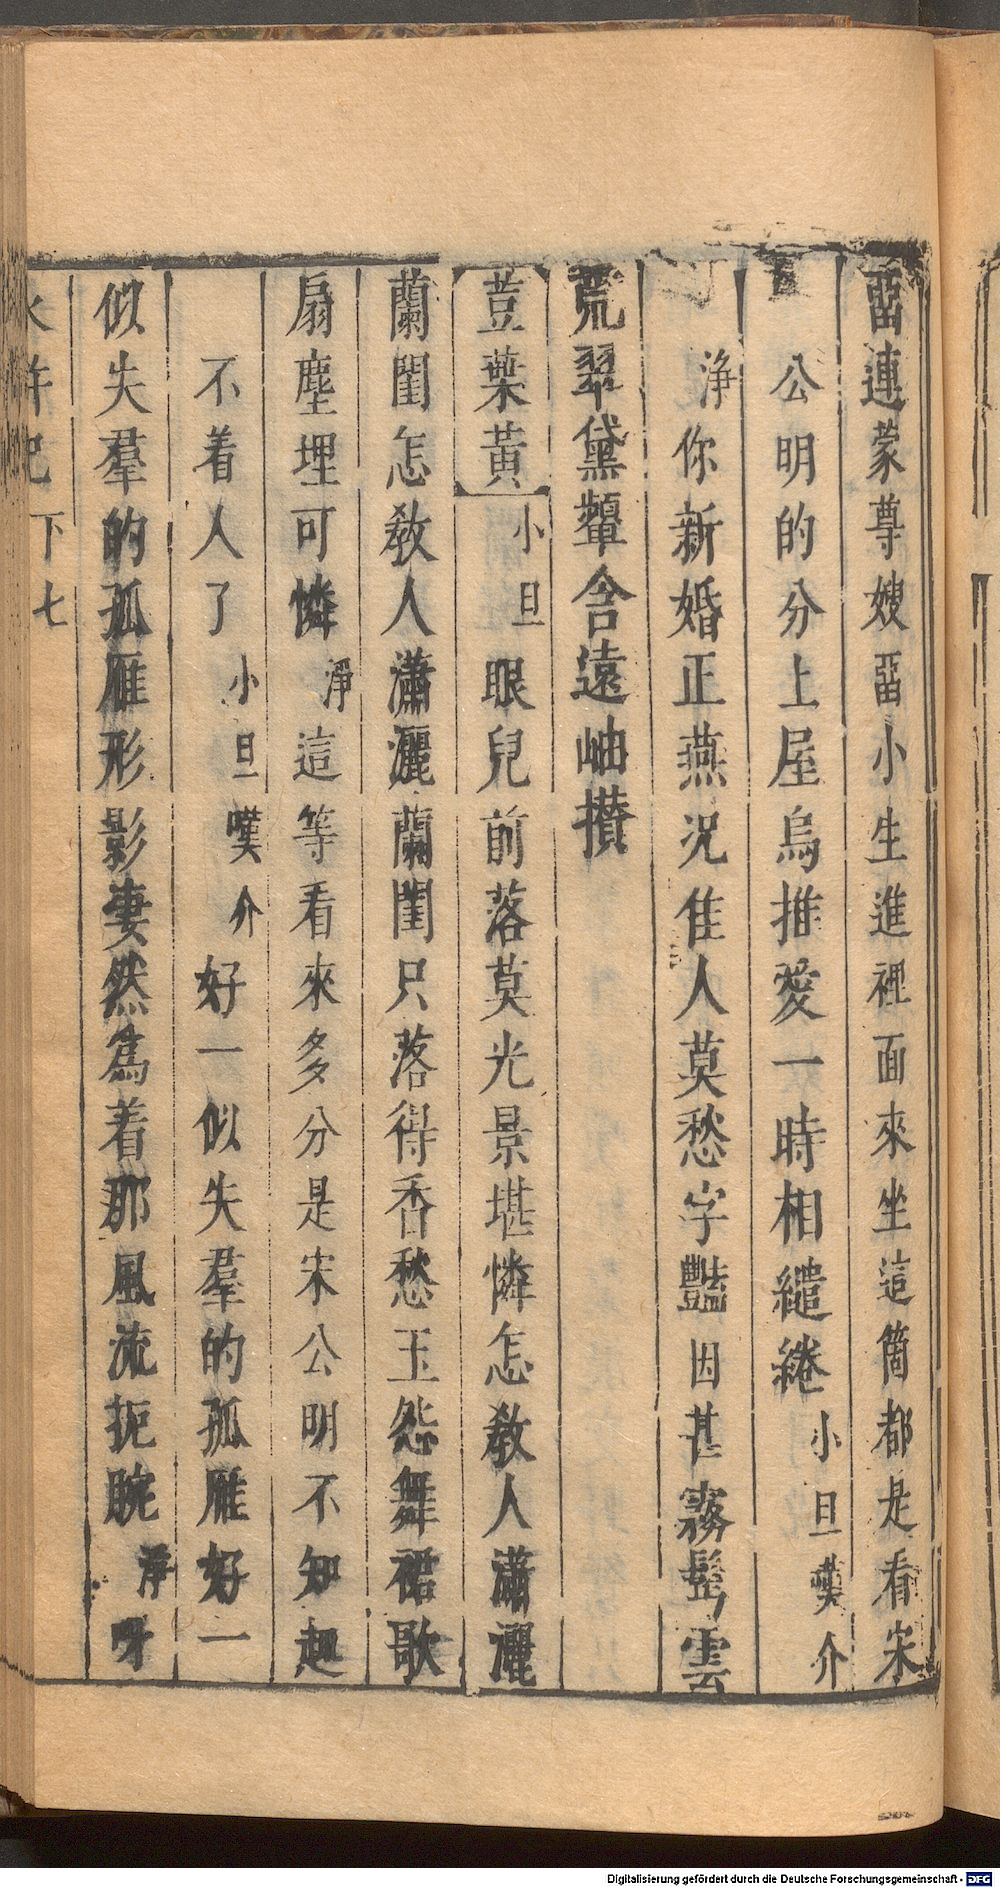 畱連蒙尊嫂畱小生進裡面來坐這箇都是看宋
公明的分上屋烏推愛一時相繾綣小旦嘆介
淨你新婚正燕况隹人莫愁字豔因甚霧髩雲
荒翠黛顰含遠岫攅
荳葉黃小旦眼兒前落莫光景堪憐怎教人瀟灑
蘭閨怎敎人瀟灑蘭閨只落得香愁玉怨舞裙歌
扇塵埋可憐淨這等看來多分是宋公明不知趣
不着人了小旦嘆介好一似失羣的孤雁好一
似失羣的孤雁形影妻然爲着那風流扼腕淨呀
水許記下七
Digitalisierung gefördert durch die Deutsche Forschungsgemeinschaft - DFG